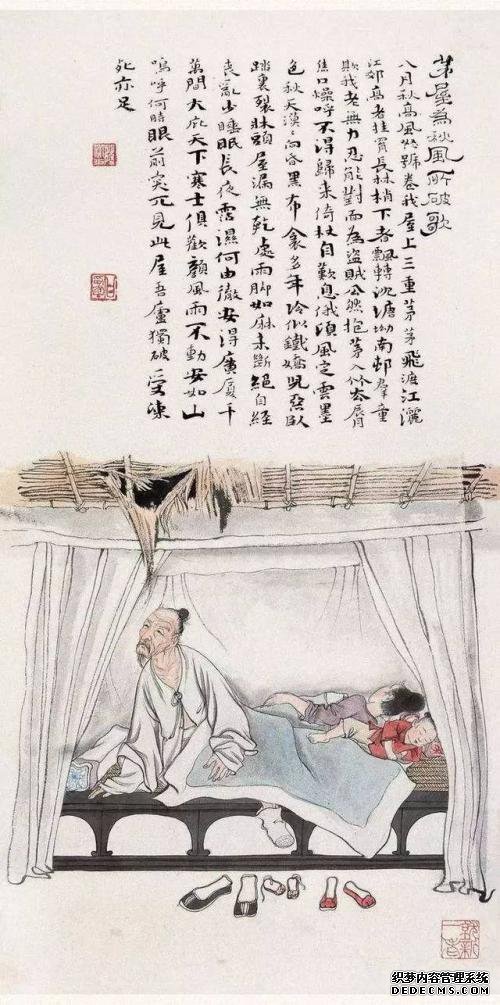 茅屋為秋風所破歌
八月秋高風怒號卷我屋上三重茅茅飛渡江灑
江郊高者挂罥長林梢下者飄轉沉塘坳南邨羣童
欺我老無力忍能對面為盜賊公然抱茅入竹去唇
焦口燥呼不得歸來倚杖自歎息俄頃風定雲墨
色秋天漠〻向昏黑布衾多年冷似鐵嬌兒惡臥
踏裏裂牀頭屋漏無乾處雨腳如麻未斷絕自經
喪亂少睡眠長夜霑濕何由徹安得廣廈千
萬間大庇天下寒士俱歡顏風雨不動安如山
嗚呼何時眼前突兀見此屋吾廬獨破受凍
死亦足
织梦内容管理系统
DEDECMS.COM